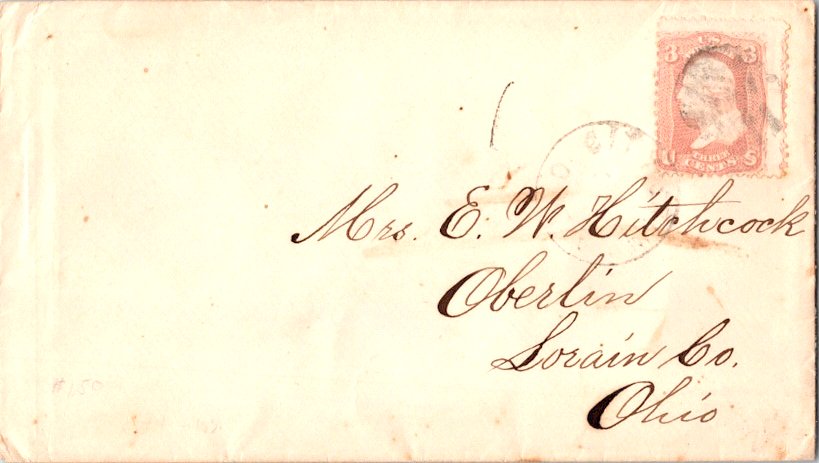 3 3
U THREE CENTS S
Mrs. E. W. Hitchcock
Oberlin
Lorain Co.
Ohio